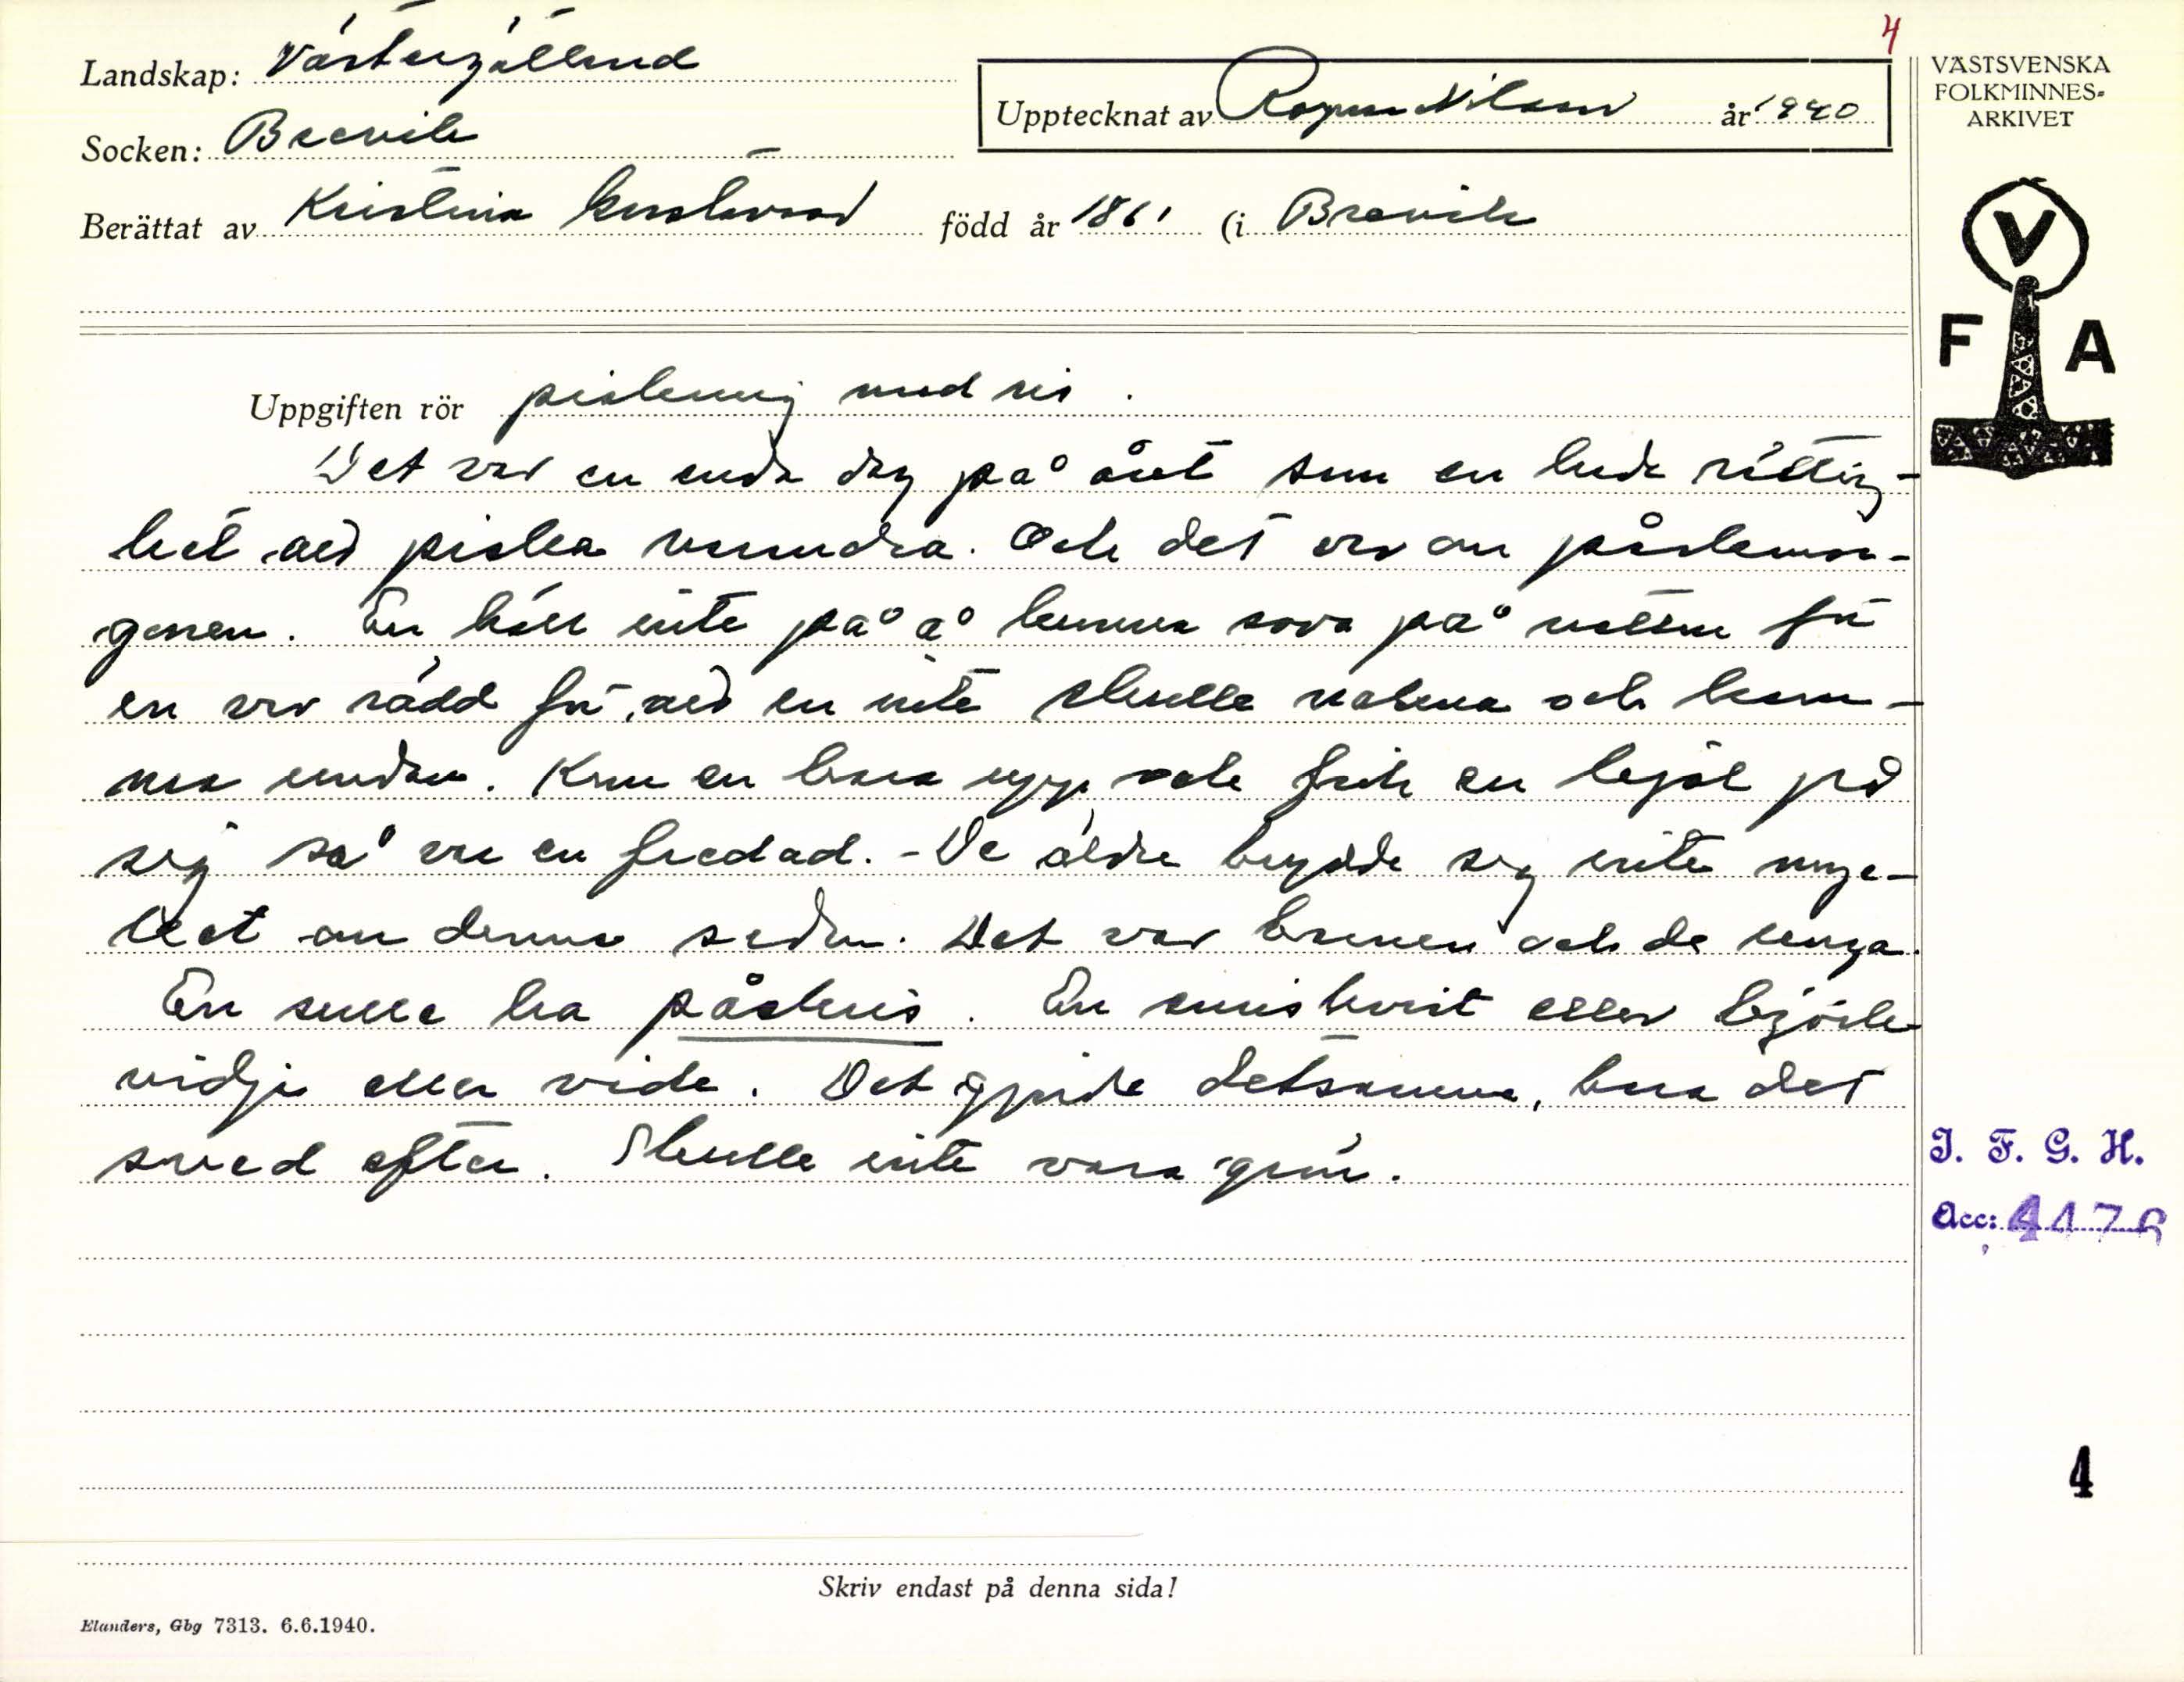 4
Landskap: Västergötland
Socken: Brevik
Upptecknat av Ragnar Nilsson år 1940
Berättat av Kristina Gustavsson född år 1861 (i Brevik
VÄSTSVENSKA
FOLKMINNES-
ARKIVET
V
F A
Uppgiften rör piskning med ris.
Det var en enda dag på året som en hade rättig-
het att piska varandra. Och det var om påskmor-
gonen. En höll inte på å kunna sova på natten för
en var rädd för att en inte skulle vakna och kom-
ma undan. Kom en bara upp och fick en kjol på
sig så var en fredad. - De äldre brydde sig inte myc-
ket om denna seden. Det var barnen och de unga.
En skulle ha påskris. En eniskvist eller björk-
vidja eller vide. Det gjorde detsamma, bara det
sved efter. Skulle inte vara grön.
I. F. G. H.
Acc: 4476
4
Skriv endast på denna sida!
Elanders, Gbg 7313. 6.6.1940.